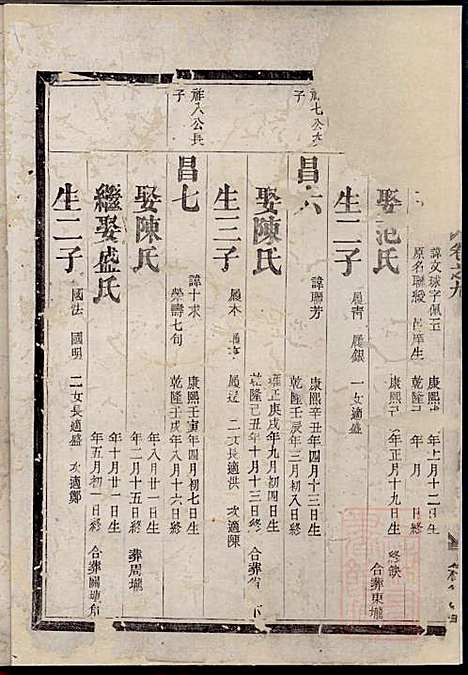 諱文球字佩玉
原名聯
年上月十二日生
年 月 日終
娶范氏
康熙
年正月十九日生
終缺
合葬東壠
生二子
履青 履銀
一女適盛
祚七公
子
昌六
諱聯芳
康熙辛丑年四月十三日生
乾隆壬辰年三月初八日終
娶陳氏
雍正庚戌年九月初四日生
乾隆己丑年十月十三日終
合葬
生三子
履本
履
二女長適洪 次適陳
祚八公長
子
昌七
諱十求
榮壽七旬
康熙壬寅年四月初七日生
乾隆壬戌年八月十六日終
娶陳氏
年八月廿一日生
年二月十五日終
葬周壠
繼娶盛氏
年十月廿一日生
年五月初一日終
合葬
生二子
國法 國明
二女長適盛 次適鄭
卷之九